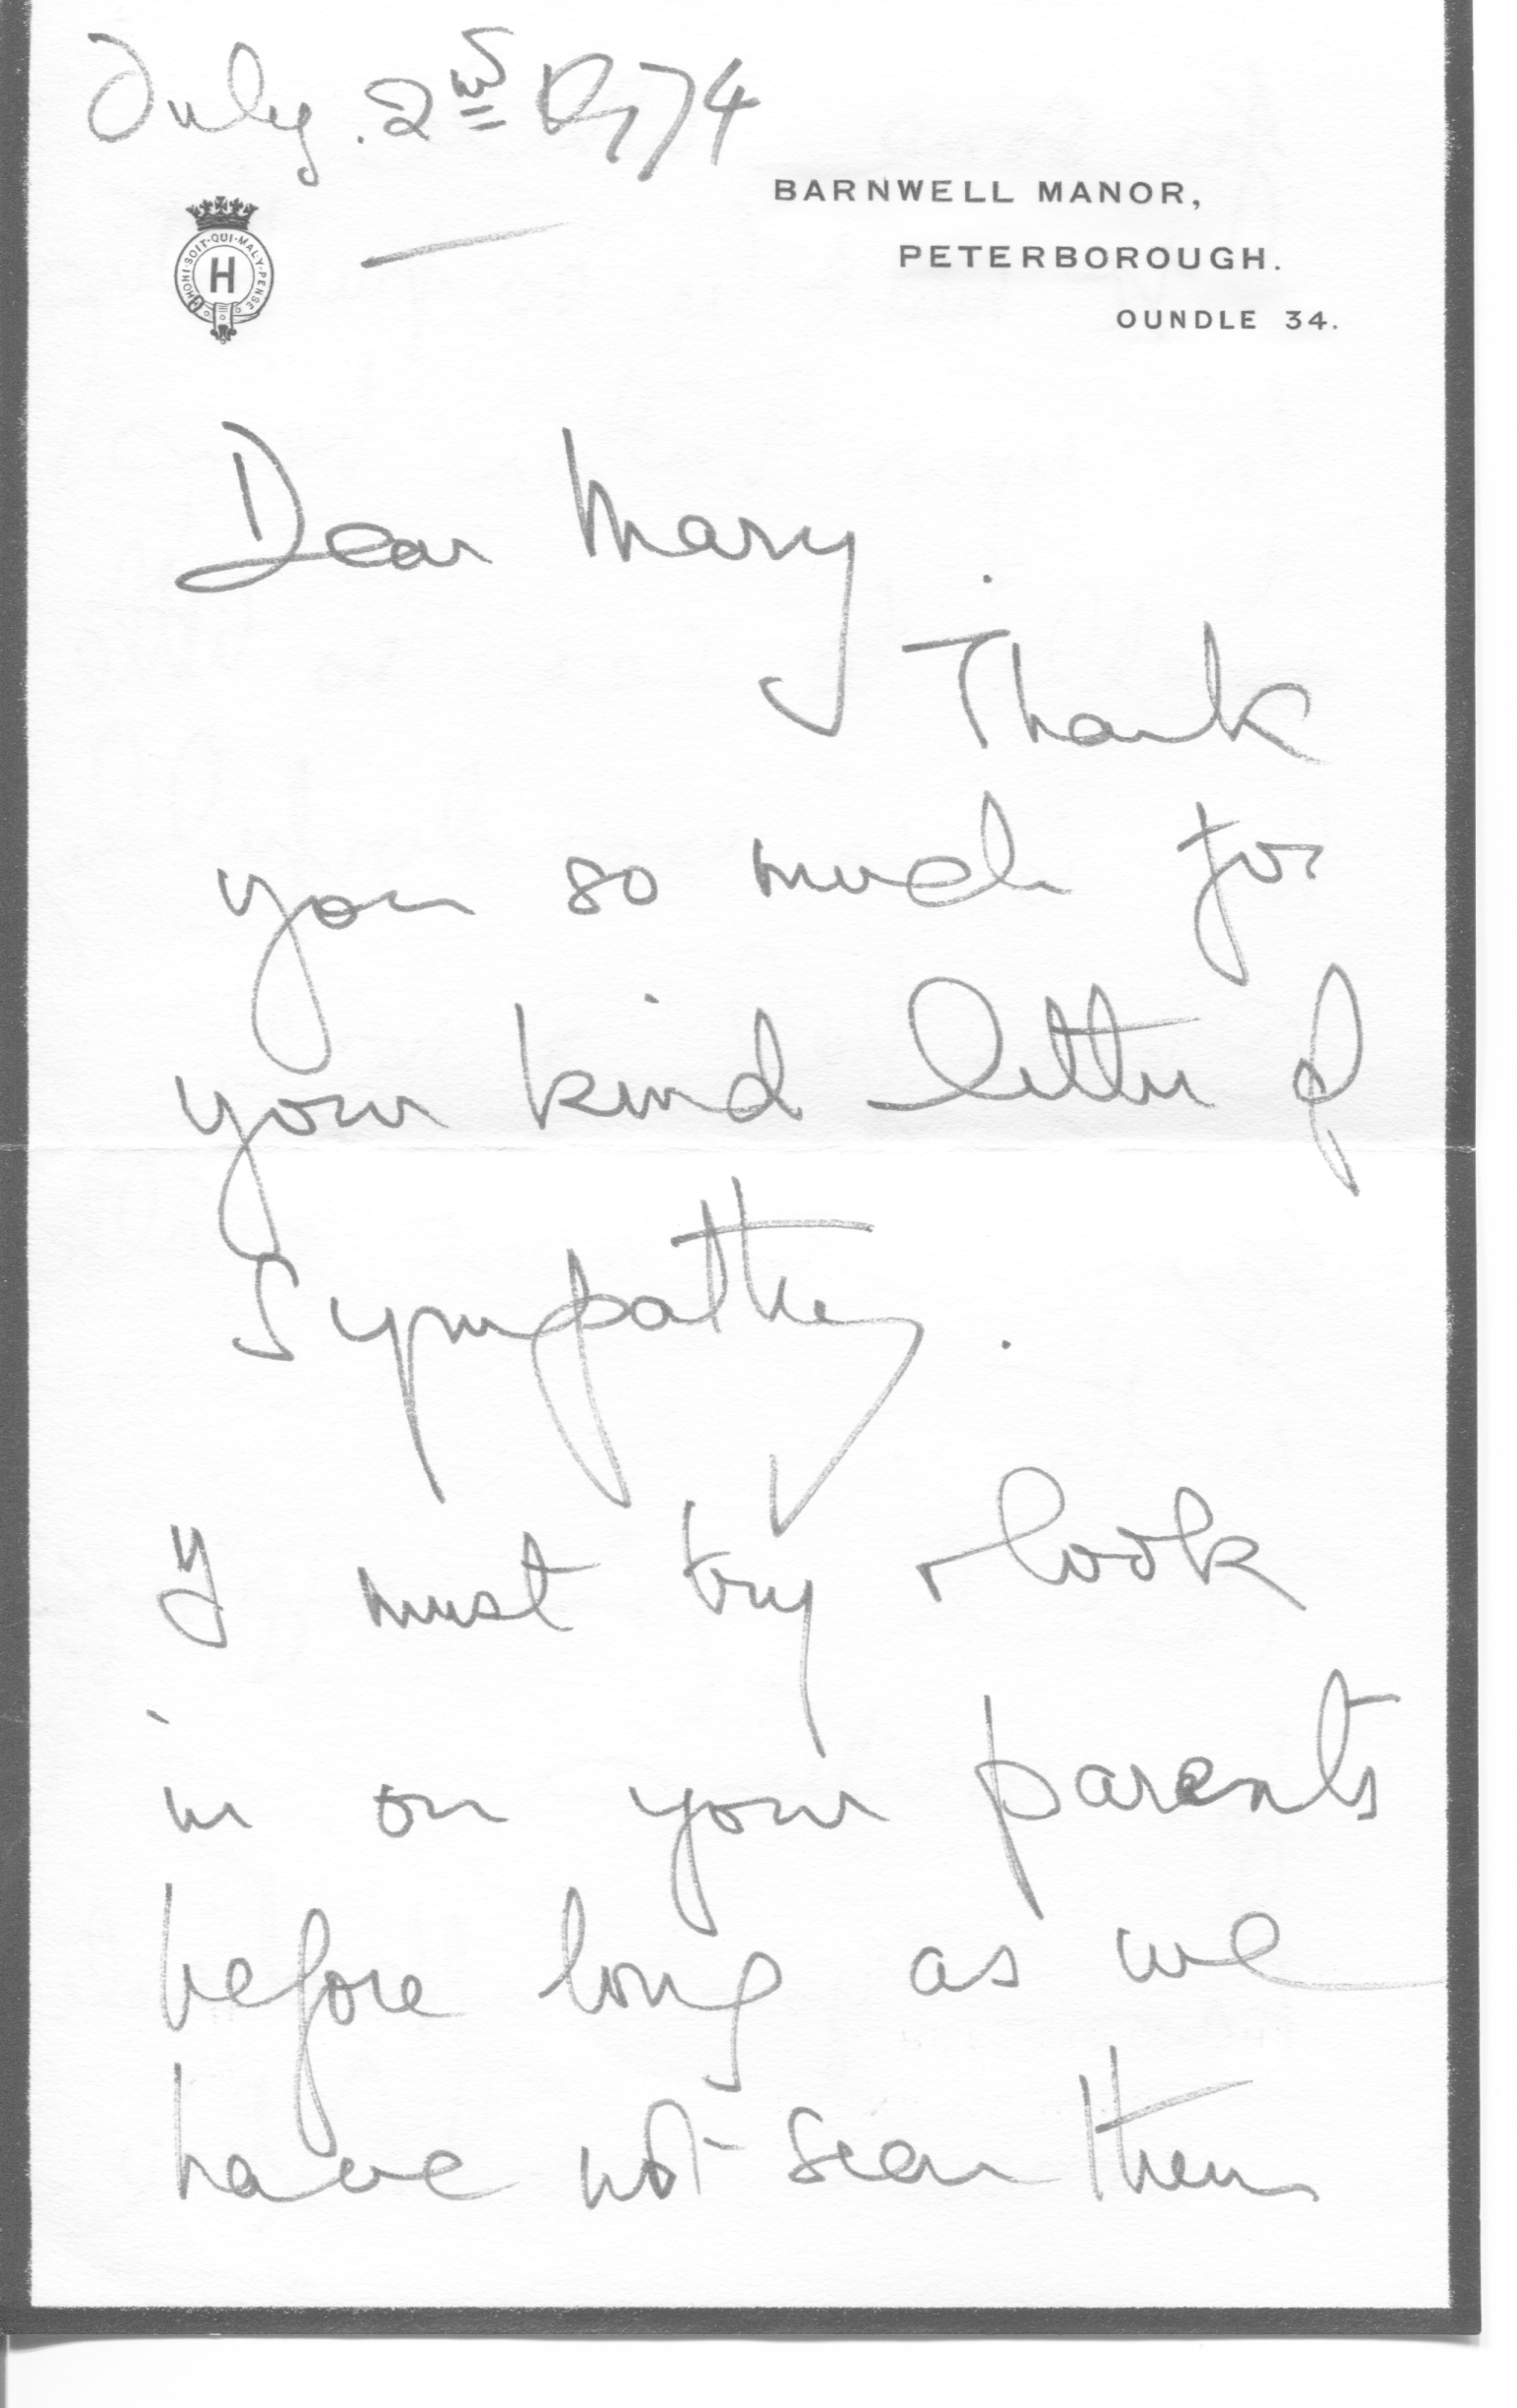 July. 2nd 1974
BARNWELL MANOR,
PETERBOROUGH.
OUNDLE 34.
HONI·SOIT·QUI·MAL·Y·PENSE
H
Dear Mary.
Thank
you so much for
your kind letter of
Sympathy.
I must try & look
in on your parents
before long as we
have not seen them